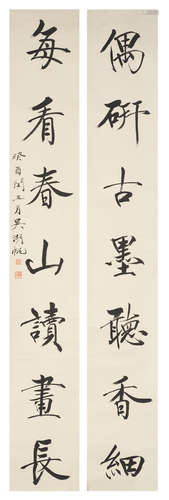 偶研古墨聽香細
每看春山讀畫長
癸酉閏五月吳湖帆